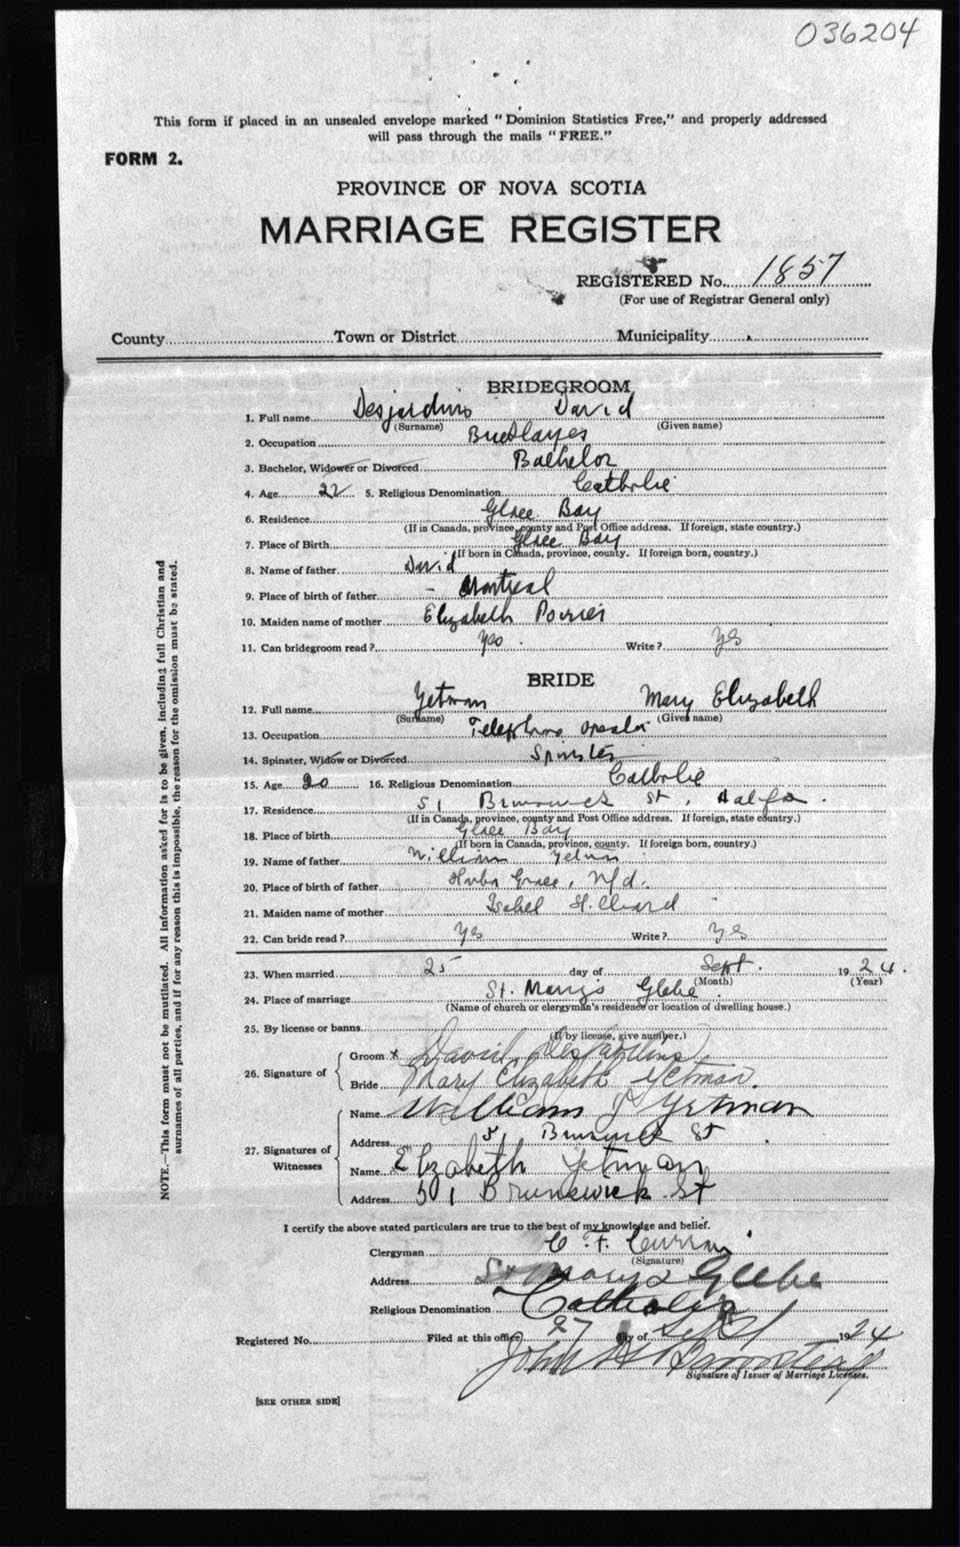 036204
This form if placed in an unsealed envelope marked "Dominion Statistics Free," and properly addressed
will pass through the mails "FREE."
FORM 2.
PROVINCE OF NOVA SCOTIA
MARRIAGE REGISTER
REGISTERED No. 1857
(For use of Registrar General only)
County Town or District Municipality
BRIDEGROOM
1. Full name Desjardins David
(Surname) (Given name)
2. Occupation
3. Bachelor, Widower or Divorced Bachelor
4. Age 22 5. Religious Denomination Catholic
6. Residence Glace Bay
(If in Canada, province, county and Post Office address. If foreign, state country.)
7. Place of Birth Glace Bay
(If born in Canada, province, county. If foreign born, country.)
8. Name of father David
9. Place of birth of father Montreal
10. Maiden name of mother Elizabeth Poirier
11. Can bridegroom read? Yes Write? Yes
BRIDE
12. Full name Yetman Mary Elizabeth
(Surname) (Given name)
13. Occupation Telephone operator
14. Spinster, Widow or Divorced Spinster
15. Age 20 16. Religious Denomination Catholic
17. Residence 51 Brunswick St, Halifax.
(If in Canada, province, county and Post Office address. If foreign, state country.)
18. Place of birth Glace Bay
(If born in Canada, province, county. If foreign born, country.)
19. Name of father William Yetman
20. Place of birth of father Harbor Grace, Nfd.
21. Maiden name of mother Isabel Hilliard
22. Can bride read? Yes Write? Yes
23. When married 25 day of Sept. 1924.
(Month) (Year)
24. Place of marriage St. Mary's Glebe
(Name of church or clergyman's residence or location of dwelling house.)
25. By license or banns
(If by license, give number.)
26. Signature of
Groom x David Desjardins
Bride Mary Elizabeth Yetman.
27. Signatures of Witnesses
Name William J Yetman
Address Brunswick St
Name Elizabeth Yetman
Address 51 Brunswick St
I certify the above stated particulars are true to the best of my knowledge and belief.
Clergyman C. F. Curran
(Signature)
Address St Mary's Glebe
Religious Denomination Catholic
Registered No. Filed at this office 27 day of Sept 1924
John
Signature of Issuer of Marriage Licenses.
[SEE OTHER SIDE]
NOTE.—This form must not be mutilated. All information asked for is to be given, including full Christian and
surnames of all parties, and if for any reason this is impossible, the reason for the omission must be stated.